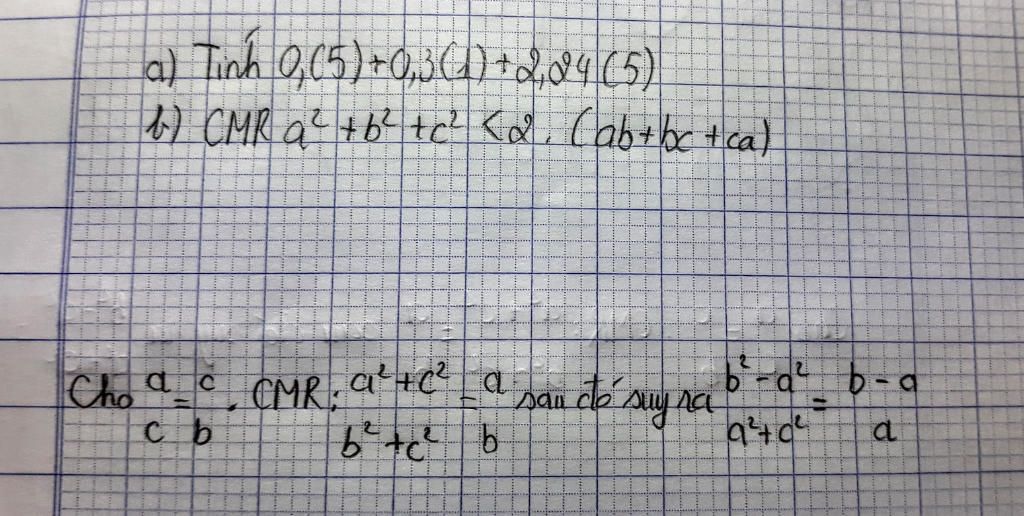 a) Tính 0,(5)+0,3(1)+2,24(5)
b) CMR a² + b² + c² < 2. (ab+bc+ca)
Cho a/c = c/b. CMR: a²+c²/b²+c² = a/b sau đó suy ra b²-a²/a²+c² = b-a/a